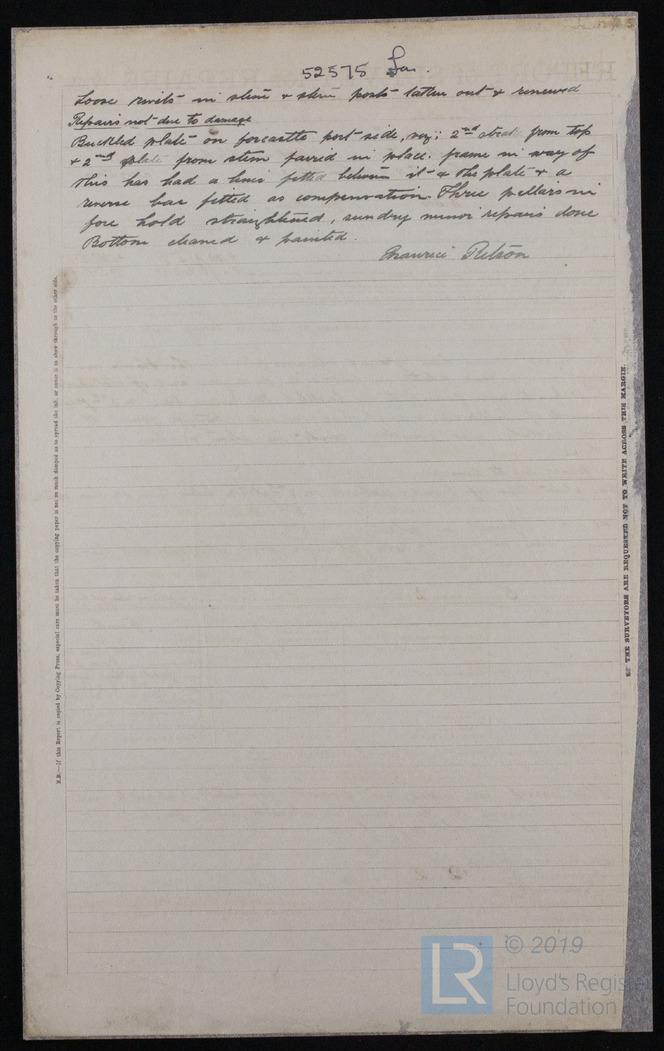 52575
Loose rivets in stem & stern posts taken out & renewed
Repairs not due to damage
Buckled plate on forecastle port side, viz; 2nd strake from top
& 2nd plate from stem faired in place. frame in way of
this has had a liner fitted between it & the plate & a
reverse bar fitted as compensation. Three pillars in
fore hold straightened, sundry minor repairs done
Bottom cleaned & painted.
Maurice
N.B.—If this Report is copied by Copying Press, especial care must be taken that the copying paper is not so much damped as to spread the ink, or cause it to show through to the other side.
THE SURVEYORS ARE REQUESTED NOT TO WRITE ACROSS THIS MARGIN.
LR
© 2019
Lloyd's Register
Foundation